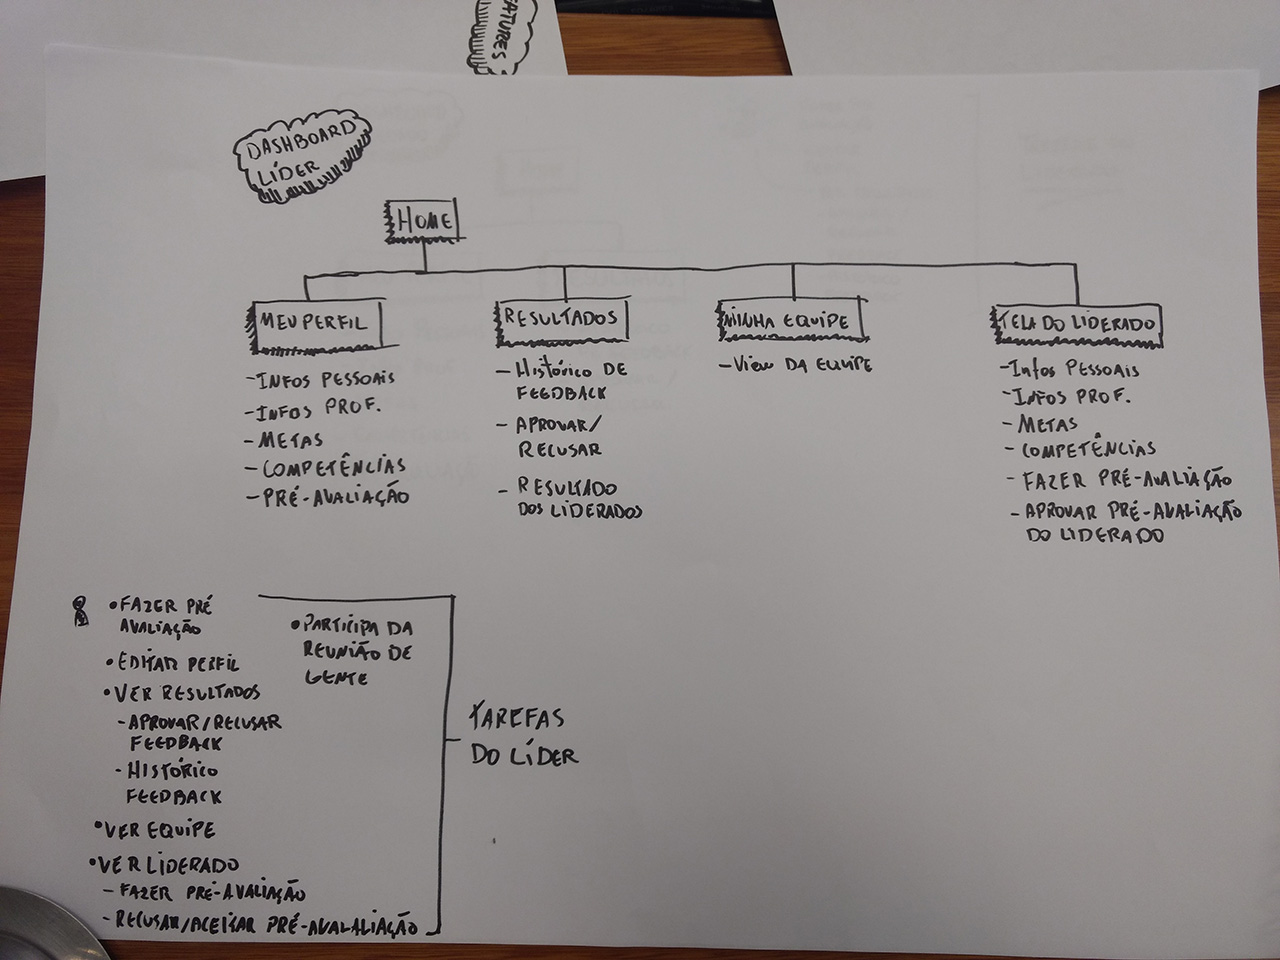 FEATURES
DASHBOARD
LÍDER
HOME
MEU PERFIL
- INFOS PESSOAIS
- INFOS PROF.
- METAS
- COMPETÊNCIAS
- PRÉ-AVALIAÇÃO
RESULTADOS
- HISTÓRICO DE
FEEDBACK
- APROVAR/
RECUSAR
- RESULTADO
DOS LIDERADOS
MINHA EQUIPE
- VIEW DA EQUIPE
TELA DO LIDERADO
- INFOS PESSOAIS
- INFOS PROF.
- METAS
- COMPETÊNCIAS
- FAZER PRÉ-AVALIAÇÃO
- APROVAR PRÉ-AVALIAÇÃO
DO LIDERADO
• FAZER PRÉ
AVALIAÇÃO
• EDITAR PERFIL
• VER RESULTADOS
- APROVAR/RECUSAR
FEEDBACK
- HISTÓRICO
FEEDBACK
• VER EQUIPE
• VER LIDERADO
- FAZER PRÉ-AVALIAÇÃO
- RECUSAR/ACEITAR PRÉ-AVALALIAÇÃO
• PARTICIPA DA
REUNIÃO DE
GENTE
TAREFAS
DO LÍDER